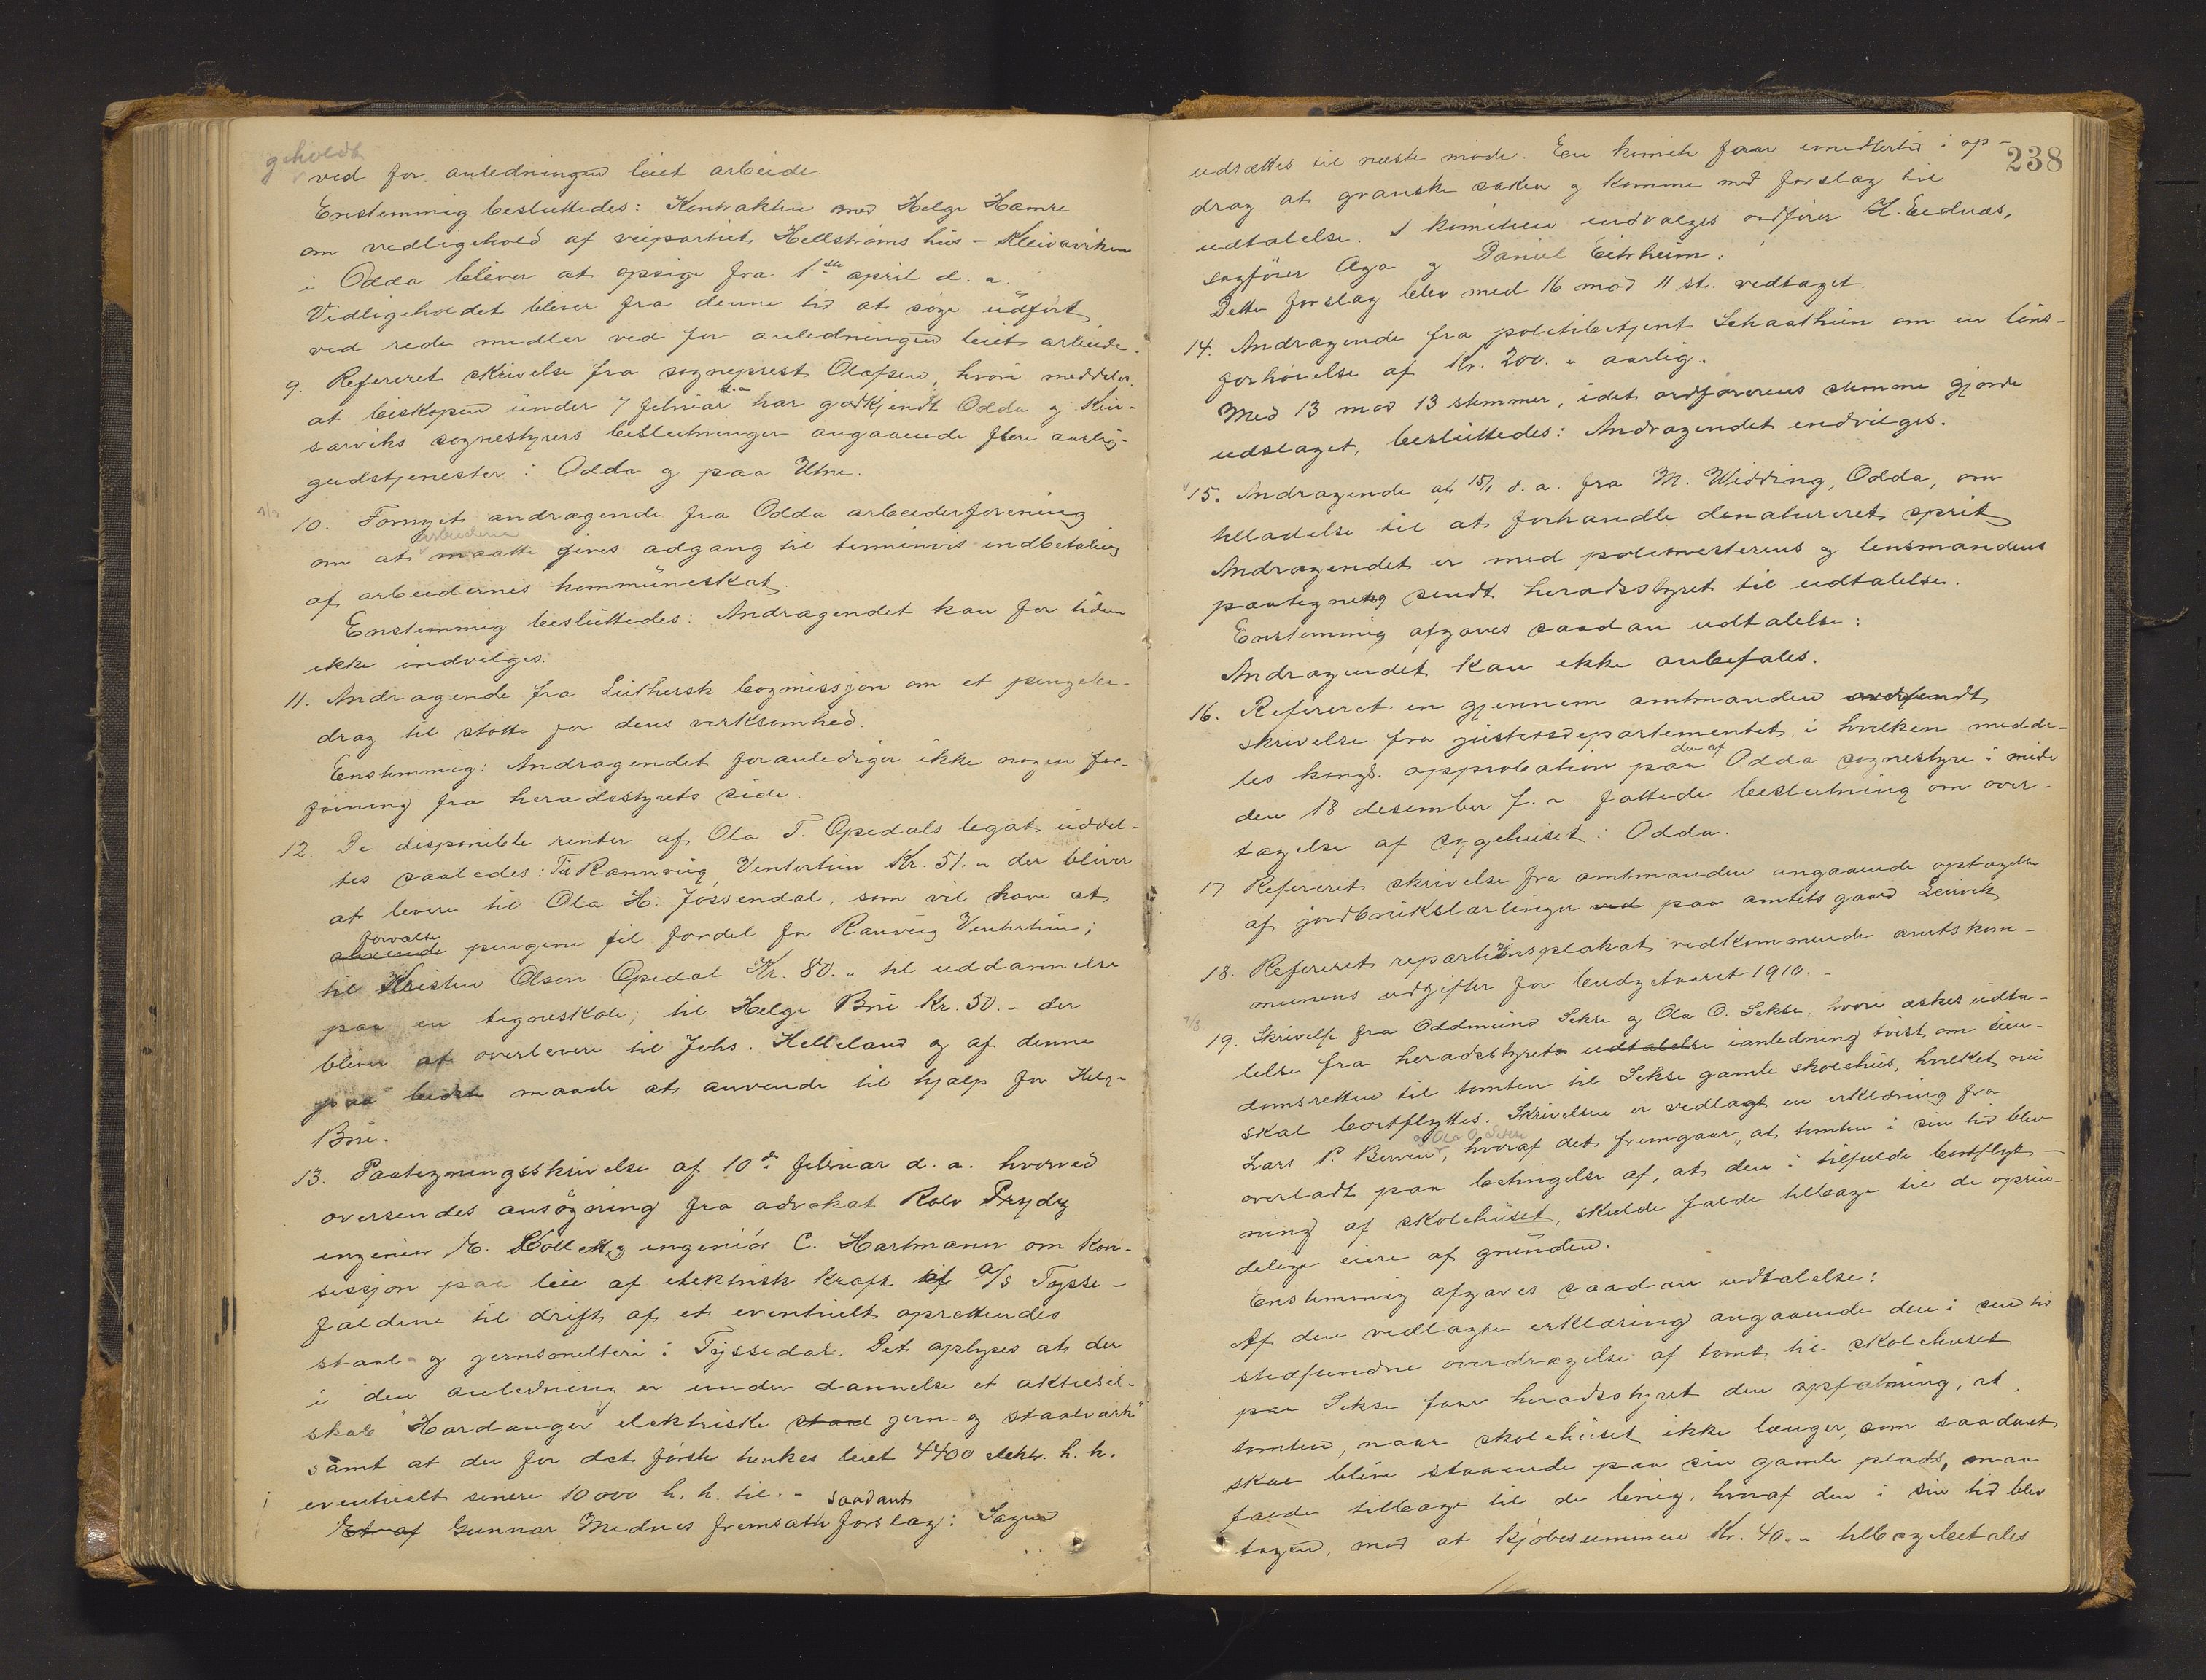 geholdt
ved for anledningen leiet arbeide.
Enstemmig besluttedes: Kontrakten med Helge Hamre
om vedligehold af veipartiet Hellströms hus - Kleivaviken
i Odda bliver at opsige fra 1ste april d. a.
Vedligeholdet bliver fra denne tid at söge udfört
ved rede midler ved for anledningen leiet arbeide.
9. Refereret skrivelse fra sogneprest Olafsen, hvori meddeles
at biskopen under 7 februar d. a. har godkjendt Odda og Kin-
sarviks sognestyrers beslutninger angaaende flere aarlig-
gudstjenester i Odda og paa Utne.
10. Fornyet andragende fra Odda arbeiderforening
om at arbeiderne maatte gives adgang til terminvis indbetaling
af arbeidernes kommuneskat.
Enstemmig besluttedes: Andragendet kan for tiden
ikke indvilges.
11. Andragende fra Luthersk bogmissjon om et pengebi-
drag til stötte for dens virksomhed.
Enstemmig: Andragendet foranlediger ikke nogen for-
föining fra heradsstyrets side.
12. De disponible renter af Ola T. Opedals legat uddel-
tes saaledes: Til Rannveig Ventertun Kr. 51.- der bliver
at levere til Ola H. Jössendal, som vil have at
forvalte
anvende pengene til fordel for Ranveig Ventertun;
til Kristen Olsen Opedal Kr. 80.- til uddannelse
paa en tegneskole; til Helge Brie Kr. 50.- der
bliver at overlevere til Johs. Helleland og af denne
paa bedste maade at anvende til hjælp for Helge
Brie.
13. Paategningsskrivelse af 10de februar d. a. hvorved
oversendes ansögning fra advokat Rolv Prydz
ingeniör E. Collett og ingeniör C. Hartmann om kon-
sessjon paa leie af elektrisk kraft af A/S Tysse-
faldene til drift af et eventuelt oprettendes
staal- og jernsmelteri i Tyssedal. Det oplyses at der
i den anledning er under dannelse et aktiesel-
skab "Hardanger elektriske staal jern- og staalverk"
samt at der for det förste tænkes leiet 4400 elektr. h. k.
eventuelt senere 10000 h. k. til.-
Et af Gunnar Mednes fremsatte saadant forslag: Sagen
238
udsættes til næste möde. En komite faar imidlertid i op-
drag at granske saken og komme med forslag til
udtalelse. I komiteen indvalges ordförer H. Eidnes,
sagförer Aga og Daniel Eitrheim.
Dette forslag blev med 16 mod 11 st. vedtaget.
14. Andragende fra politibetjent Schaathun om en löns-
forhöielse af Kr. 200.- aarlig.
Med 13 mod 13 stemmer, idet ordförerens stemme gjorde
udslaget, besluttedes: Andragendet indvilges.
15. Andragende af 15/1 d. a. fra M. Widding, Odda, om
tilladelse til at forhandle denatureret sprit
Andragendet er med politmesterens og lensmandens
paategnet og sendt heradsstyret til udtalelse.
Enstemmig afgaves saadan udtalelse:
Andragendet kan ikke anbefales.
16. Refereret en gjennem amtmanden
skrivelse fra justisdepartementet i hvilken medde-
les kongl. approbation paa den af Odda sognestyre i möde
den 18 desember f. a. fattede beslutning om over-
tagelse af sygehuset i Odda.
17 Refereret skrivelse fra amtmanden angaaende optagelse
af jordbrukslærlinger ved paa amtets gaard Leirvik
18. Refereret repartitionsplakat vedkommende amtskom-
munens udgifter for budgetaaret 1910.-
19. Skrivelse fra Oddmund Sekse og Ola O. Sekse, hvori æskes udta-
lelse fra heradsstyrets udtalelse i anledning tvist om eien-
domsretten til tomten til Sekse gamle skolehus, hvilket nu
skal bortflyttes. Skrivelsen er vedlagt en erklæring fra
Lars P. Berven og Ola O. Sekse, hvoraf det fremgaar, at tomten i sin tid blev
overladt paa betingelse af, at den i tilfælde bortflyt-
ning af skolehuset, skulde falde tilbage til de oprin-
delige eiere af grunden.
Enstemmig afgaves saadan udtalelse:
Af den vedlagte erklæring angaaende den i sin tid
stedfundne overdragelse af tomt til skolehuset
paa Sekse faar heradsstyret den opfatning, at
tomten, naar skolehuset ikke længer, som saadant
skal blive staaende paa sin gamle plads, maa
falde tilbage til de brug, hvoraf den i sin tid blev
tagen, mod at kjöbesummen Kr. 40.- tilbagebetales